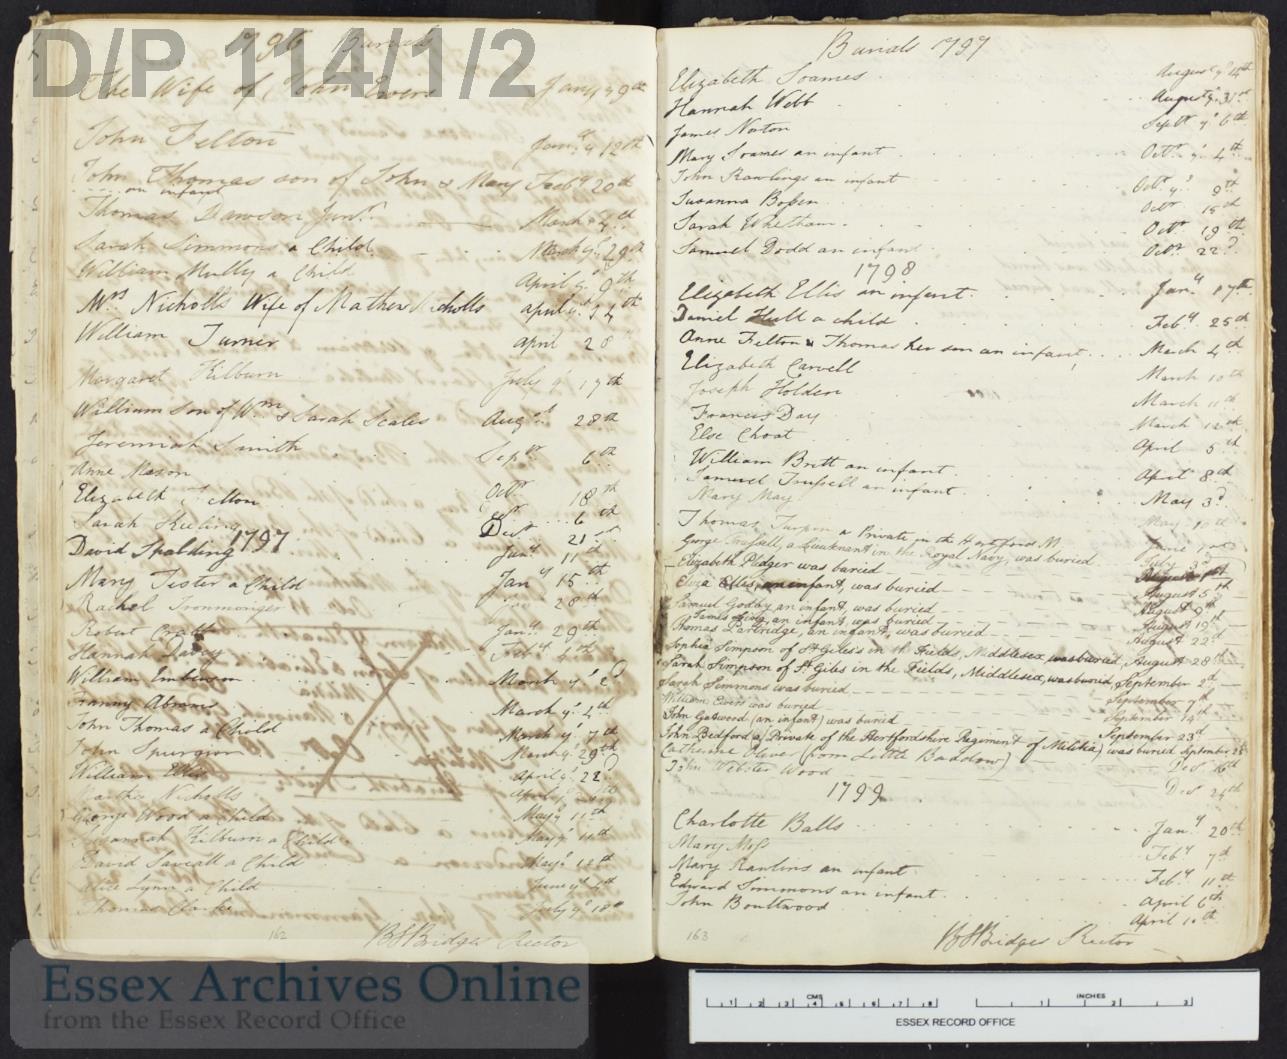 D/P 114/1/2
1796 Burials
The Wife of John Ewers Jany ye 9th
John Felton Jany ye 12th
John Thomas son of John & Mary Feby 20th
an infant
Thomas Dawson Junr March 4th
Sarah Simmons a Child March ye 29th
William Mully a Child April ye 9th
Mrs Nicholls Wife of Mathew Nicholls April ye 14th
William Turner April 28
Margaret Kilburn July ye 17th
William Son of Wm & Sarah Scales Augst 28th
Jeremiah Smith Sepbr 6th
Anne Mason Octr 18th
Elizabeth Felton 6th
Sarah Keeling Decr 21st
1797
David Spalding Jany 11th
Mary Tester a Child Jany 15th
Rachel Ironmonger 28th
Robert Jany 29th
Hannah Davey Feby
William Emberson March ye 2d
Franny Abrams March ye 4th
John Thomas a Child March ye 7th
John Spurgion March ye 29th
William Ellis April ye 22d
Martha Nicholls April
George Wood a Child May ye 11th
Susannah Kilburn a Child May ye
David Saveall a Child May ye 18th
Alice Lynn a Child June ye
Thomas Clarke July ye 18th
162 BS Bridges Rector
Burials 1797
Elizabeth Soames August ye 4th
Hannah Webb August ye 31st
James Norton Septr ye 6th
Mary Soames an infant Octr ye 4th
John Rawlings an infant Octr ye 9th
Susanna Boosen Octr 15th
Sarah Whetham Octr 19th
Samuel Dodd an infant Octr 22d
1798
Elizabeth Ellis an infant Jany 17th
Daniel Hull a child Feby 25th
Anne Felton & Thomas her son an infant March 4th
Elizabeth Carvell March 10th
Joseph Holden March 11th
Francis Day March 12th
Else Choat April 5th
William Britt an infant April 8th
Samuel Trussell an infant May 3d
Mary May May 10th
Thomas Turpin a Private in the Hertford M June
George Trussell, a Lieutenant in the Royal Navy, was buried July 3d
Elizabeth Pledger was buried August 1st
Eliza Ellis, an infant, was buried August 5th
Samuel Godby an infant, was buried August 9th
James King, an infant, was buried August 19th
Thomas Partridge, an infant, was buried August 22d
Sophia Simpson of St Giles's in the Fields, Middlesex, was buried, August 28th
Sarah Simpson of St Giles in the Fields, Middlesex, was buried, September 2d
Sarah Simmons was buried September 7th
William Evers was buried September 14th
John Gatwood (an infant) was buried September 23d
John Bedford a Private of the Hertfordshire Regiment of Militia) was buried September 28
Catherine Olive (from Little Baddow) Decr 16th
John Webster Wood Decr 24th
1799
Charlotte Balls Jany 20th
Mary Moss Feby 7th
Mary Rawlins an infant Feby 11th
Edward Simmons an infant April 6th
John Boultwood April 10th
163 BS Bridges Rector
Essex Archives Online
from the Essex Record Office
CMS
1 2 3 4 5 6 7 8
INCHES
1 2 3
ESSEX RECORD OFFICE